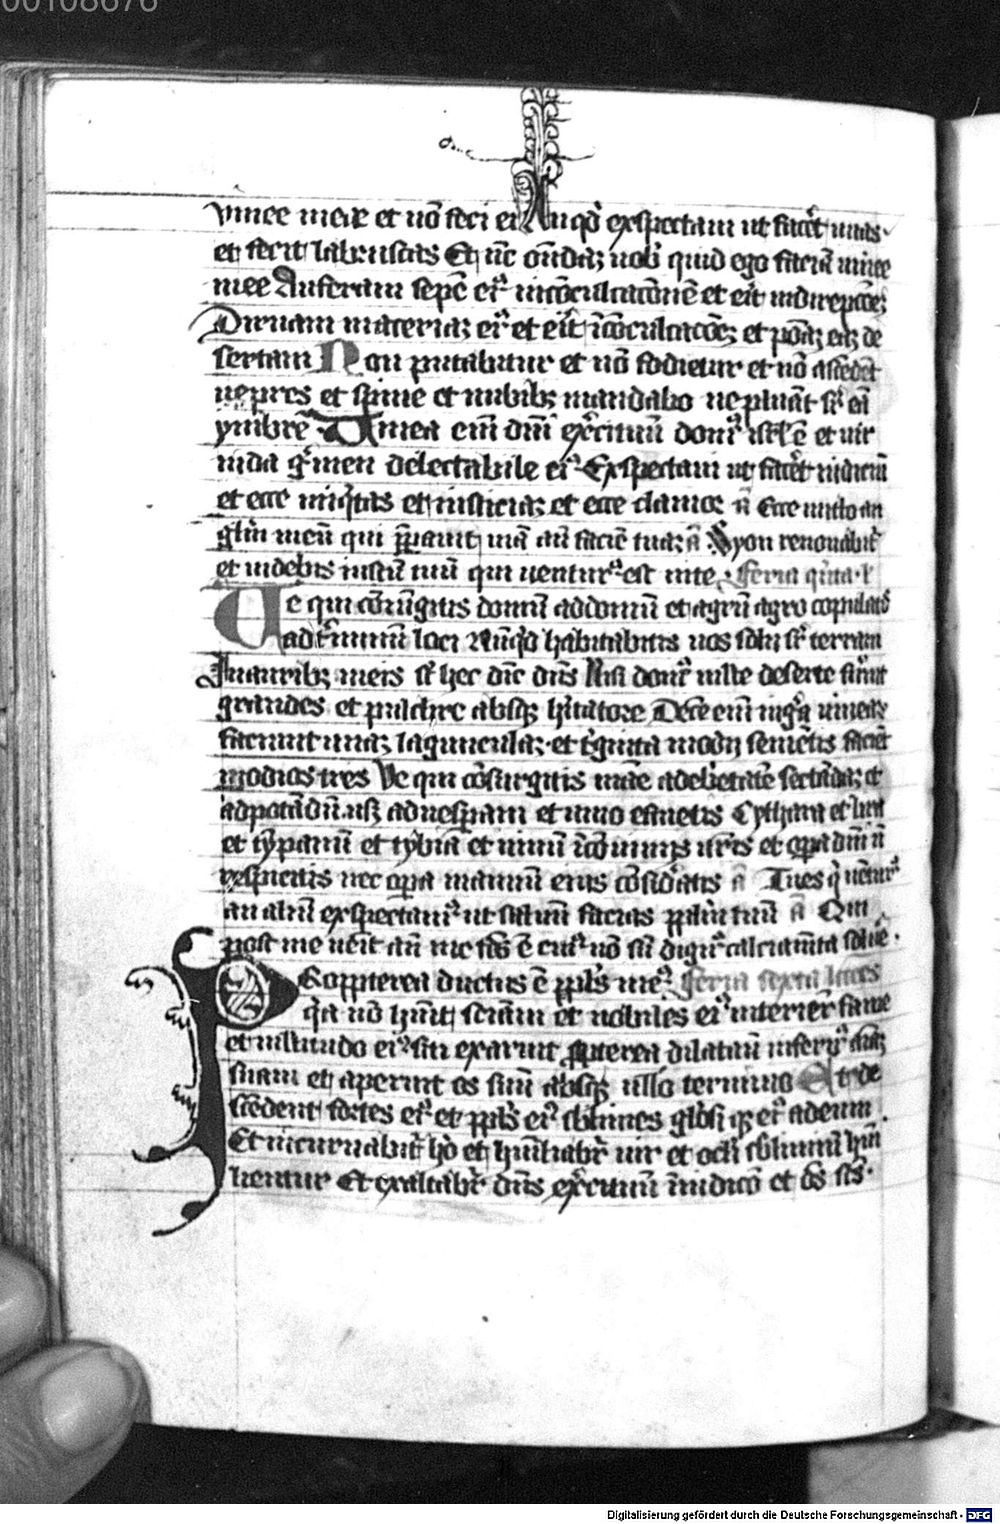 00108676
vinee mee et nō feci ei An qđ exspectaui ut faceret uuas
et fecit labruscas Et nc̄ ondā uob quid ego faciā uinee
mee Auferam sepē eiꝰ in cōculcacōnē et erit in direpcōeꝫ
Diruam maceriaꝫ eiꝰ et erit ī cōculcacōeꝫ et ponā eaꝫ de
sertam Non putabitur et nō fodietur et nō ascēdēt
uepres et spine et nubibꝫ mandabo ne pluāt sr̄ eā
ymbrē Vinea em̄ dn̄i exercituū domꝰ isrl̄ ē et uir
iuda germen delectabile eiꝰ Exspectaui ut faceret iudiciū
et ecce iniqͥtas et iusticiaꝫ et ecce clamor Ecce mitto an
glm̄ meū qui pp̄aūit uiā an̄ faciē tuaꝫ Syon renouabit̄
et uidebis iustū tuū qui uenturꝰ est in te feria qͥnta
Ve qui cōiūgitis domū ad domū et agrū agro copulatis
ad t̄minum loci Nūqͥd habitabitis uos soli sr̄ terram
In auribꝫ meis st̄ hec dic̄ dn̄s Nisi domꝰ multe deserte fuerint
grandes et pulchre absqꝫ hītatore Decē em̄ iugera uinearꝫ
facient unaꝫ lagunculaꝫ et triginta modij semētis faciēt
modios tres Ve qui cōsurgitis mane ad ebrietatē sectandaꝫ et
ad potādū usqꝫ ad uesperam et uino estuetis Cythara et lira
et tȳpanū et tybia et uinū ī cōuiuijs uris et opa dn̄i n̄
respicitis nec opa manuū eius cōsid̄atis Tu es qͥ uēturꝰ
an aliū exspectamꝰ ut saluū facias pplm̄ tuū Qui
post me uenit an̄ me fc̄s ē cuiꝰ nō sū dignꝰ calciamēta soluē
Propterea ductus ē ppls meꝰ feria sexta
qͥa nō habuit sciam et nobiles eiꝰ interier̄ fame
et multitudo eiꝰ siti exaruit Propterea dilatauit inferꝰ aīaꝫ
suam et aperuit os suū absqꝫ ullo termino Et de
scēdent fortes eiꝰ et ppls eiꝰ sblimes glosiqꝫ eiꝰ ad eum
Et incuruabit̄ ho et humiliabit̄ uir et ocli sblimiū humi
lientur Et exaltabit̄ dn̄s exercituū in iudicō et ds scs
Digitalisierung gefördert durch die Deutsche Forschungsgemeinschaft - DFG